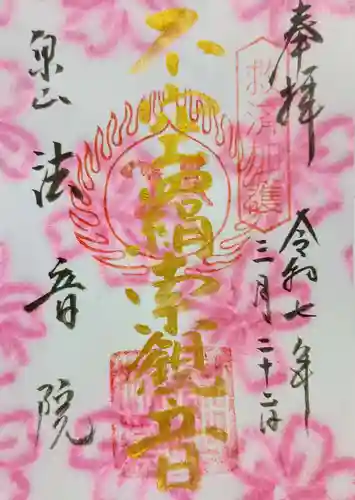 奉拝
救済加護
令和七年
三月二十二日
不空羂索観音
泉山
法音院